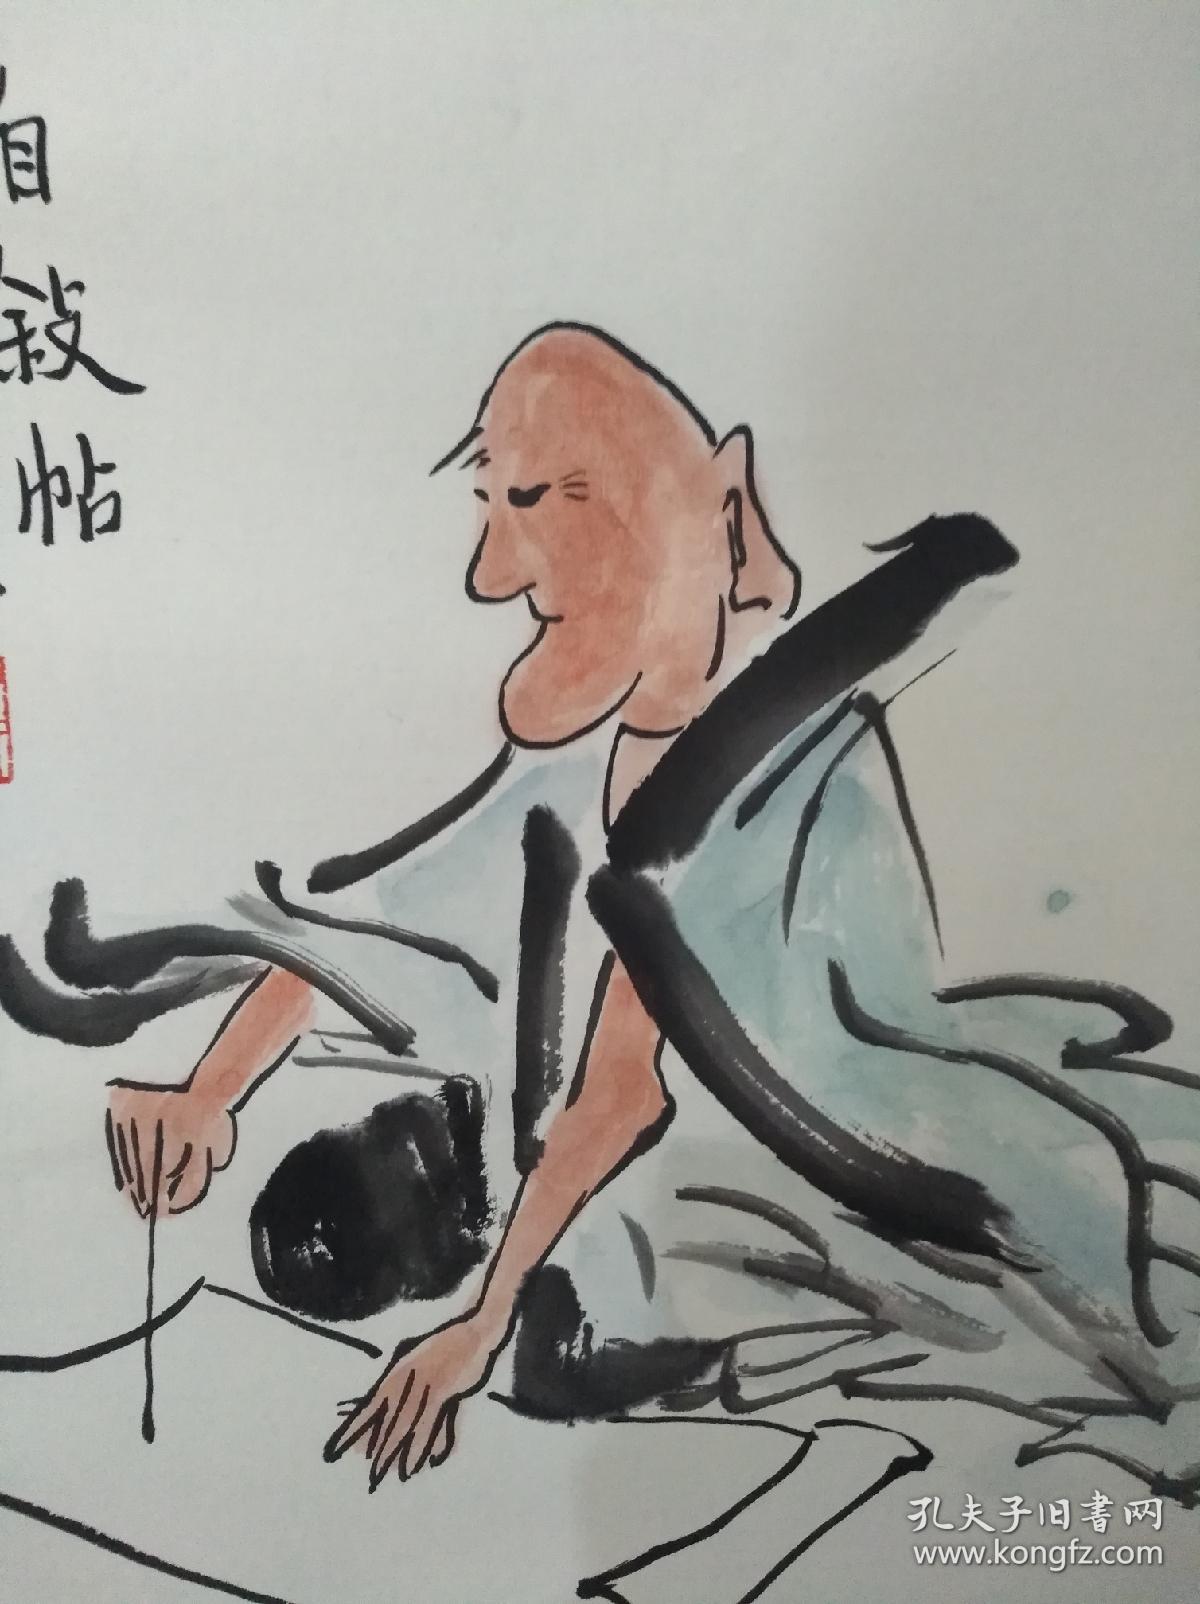 自
敍
帖
孔夫子旧書网
www.kongfz.com